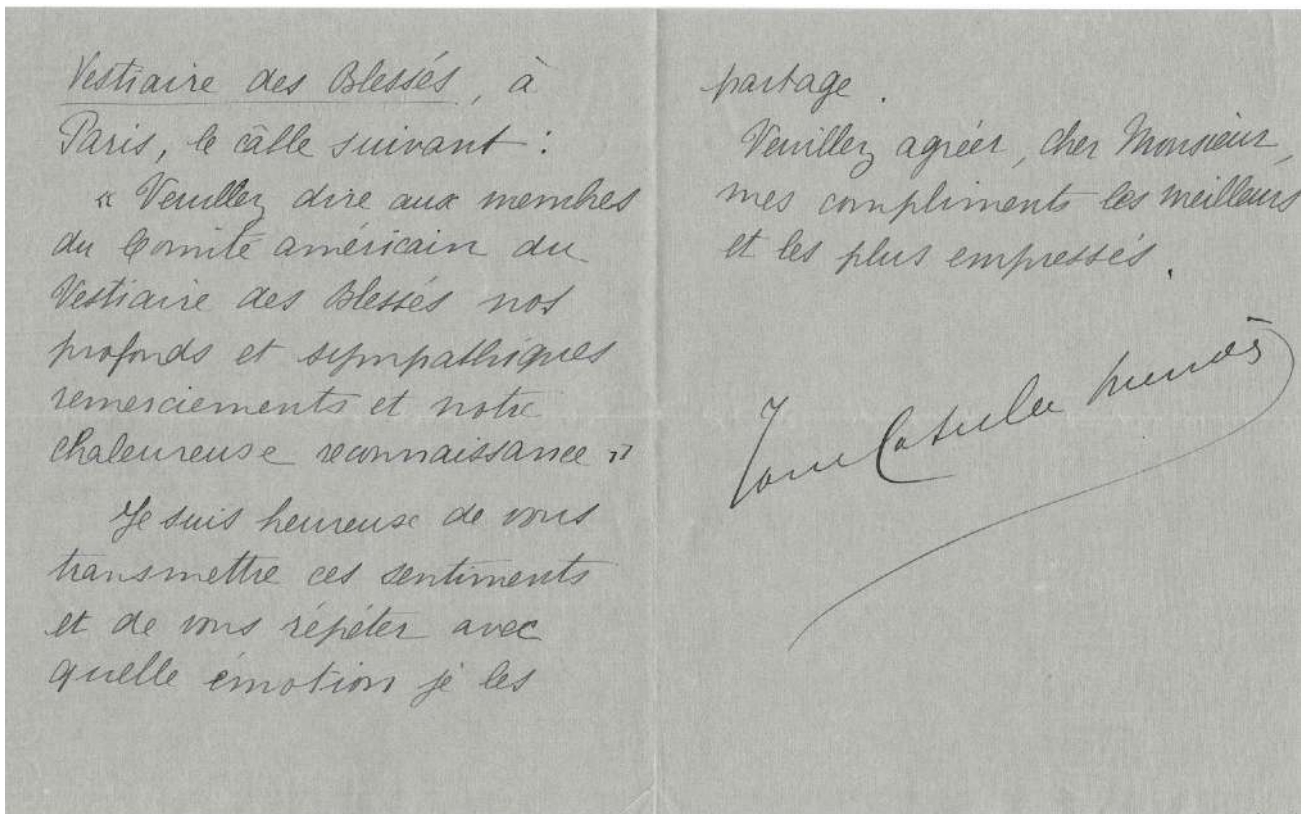 Vestiaire des Blessés, à
Paris, le câble suivant :
« Veuillez dire aux membres
du Comité américain du
Vestiaire des Blessés nos
profonds et sympathiques
remerciements et notre
chaleureuse reconnaissance »
Je suis heureuse de vous
transmettre ces sentiments
et de vous répéter avec
quelle émotion je les
partage.
Veuillez agréer, cher Monsieur,
mes compliments les meilleurs
et les plus empressés.
Jane Catulle Mendès